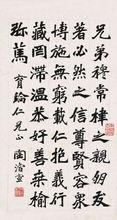 兄弟穆常棣之親朋友
著必然之信尊賢容衆
博施無窮載仁抱義行
藏罔滯溫恭好善桑榆
弥篤 仁兄正 陶濬宣